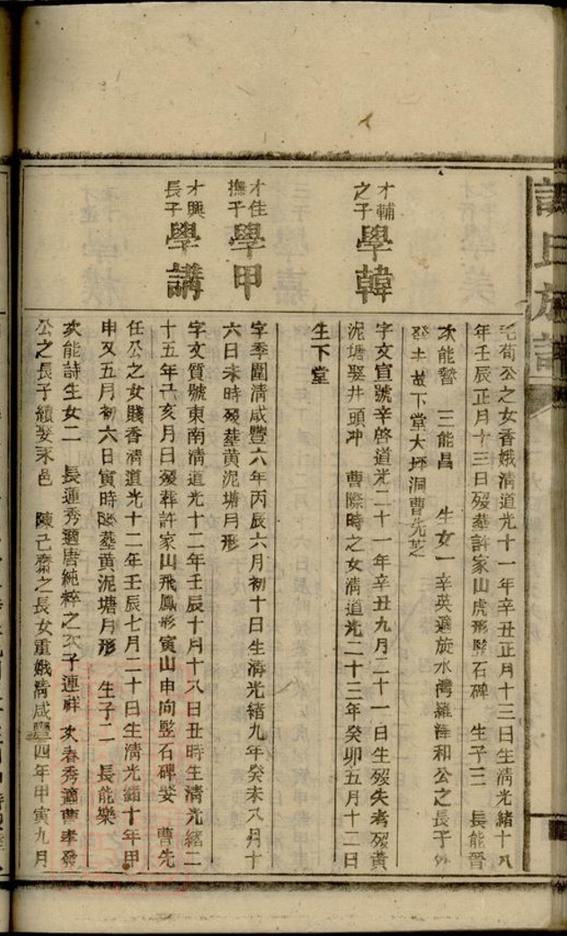 氏族譜
毛荀公之女香娥清道光十一年辛丑正月十三日生清光緒十八
年壬辰正月十三日歿葬許家山虎形豎石碑 生子三 長能晉
次能 三能昌 生女一辛英適旋水灣羅 和公之長子
故下堂大坪洞曹先芝
才輔之子 學韓
字文宣號辛啓道光二十一年辛丑九月二十一日生歿失考歿黃
泥塘娶井頭冲 曹際時之女清道光二十三年癸卯五月十二日
生下堂
才佳撫子 學甲
字季圍清咸豐六年丙辰六月初十日生清光緒九年癸未八月十
六日未時歿葬黃泥塘月形
才興長子 學講
字文質號東南清道光十二年壬辰十月十八日丑時生清光緒二
十五年己亥月日歿葬許家山飛鳳形寅山申向豎石碑娶 曹先
任公之女賤香清道光十二年壬辰七月二十日生清光緒十年甲
申又五月初六日寅時歿葬黃泥塘月形 生子二 長能樂
次能詩生女二 長連秀適唐純粹之次子連祥 次春秀適曹孝發
公之長子續娶禾邑 陳己齋之長女重娥清咸豐四年甲寅九月